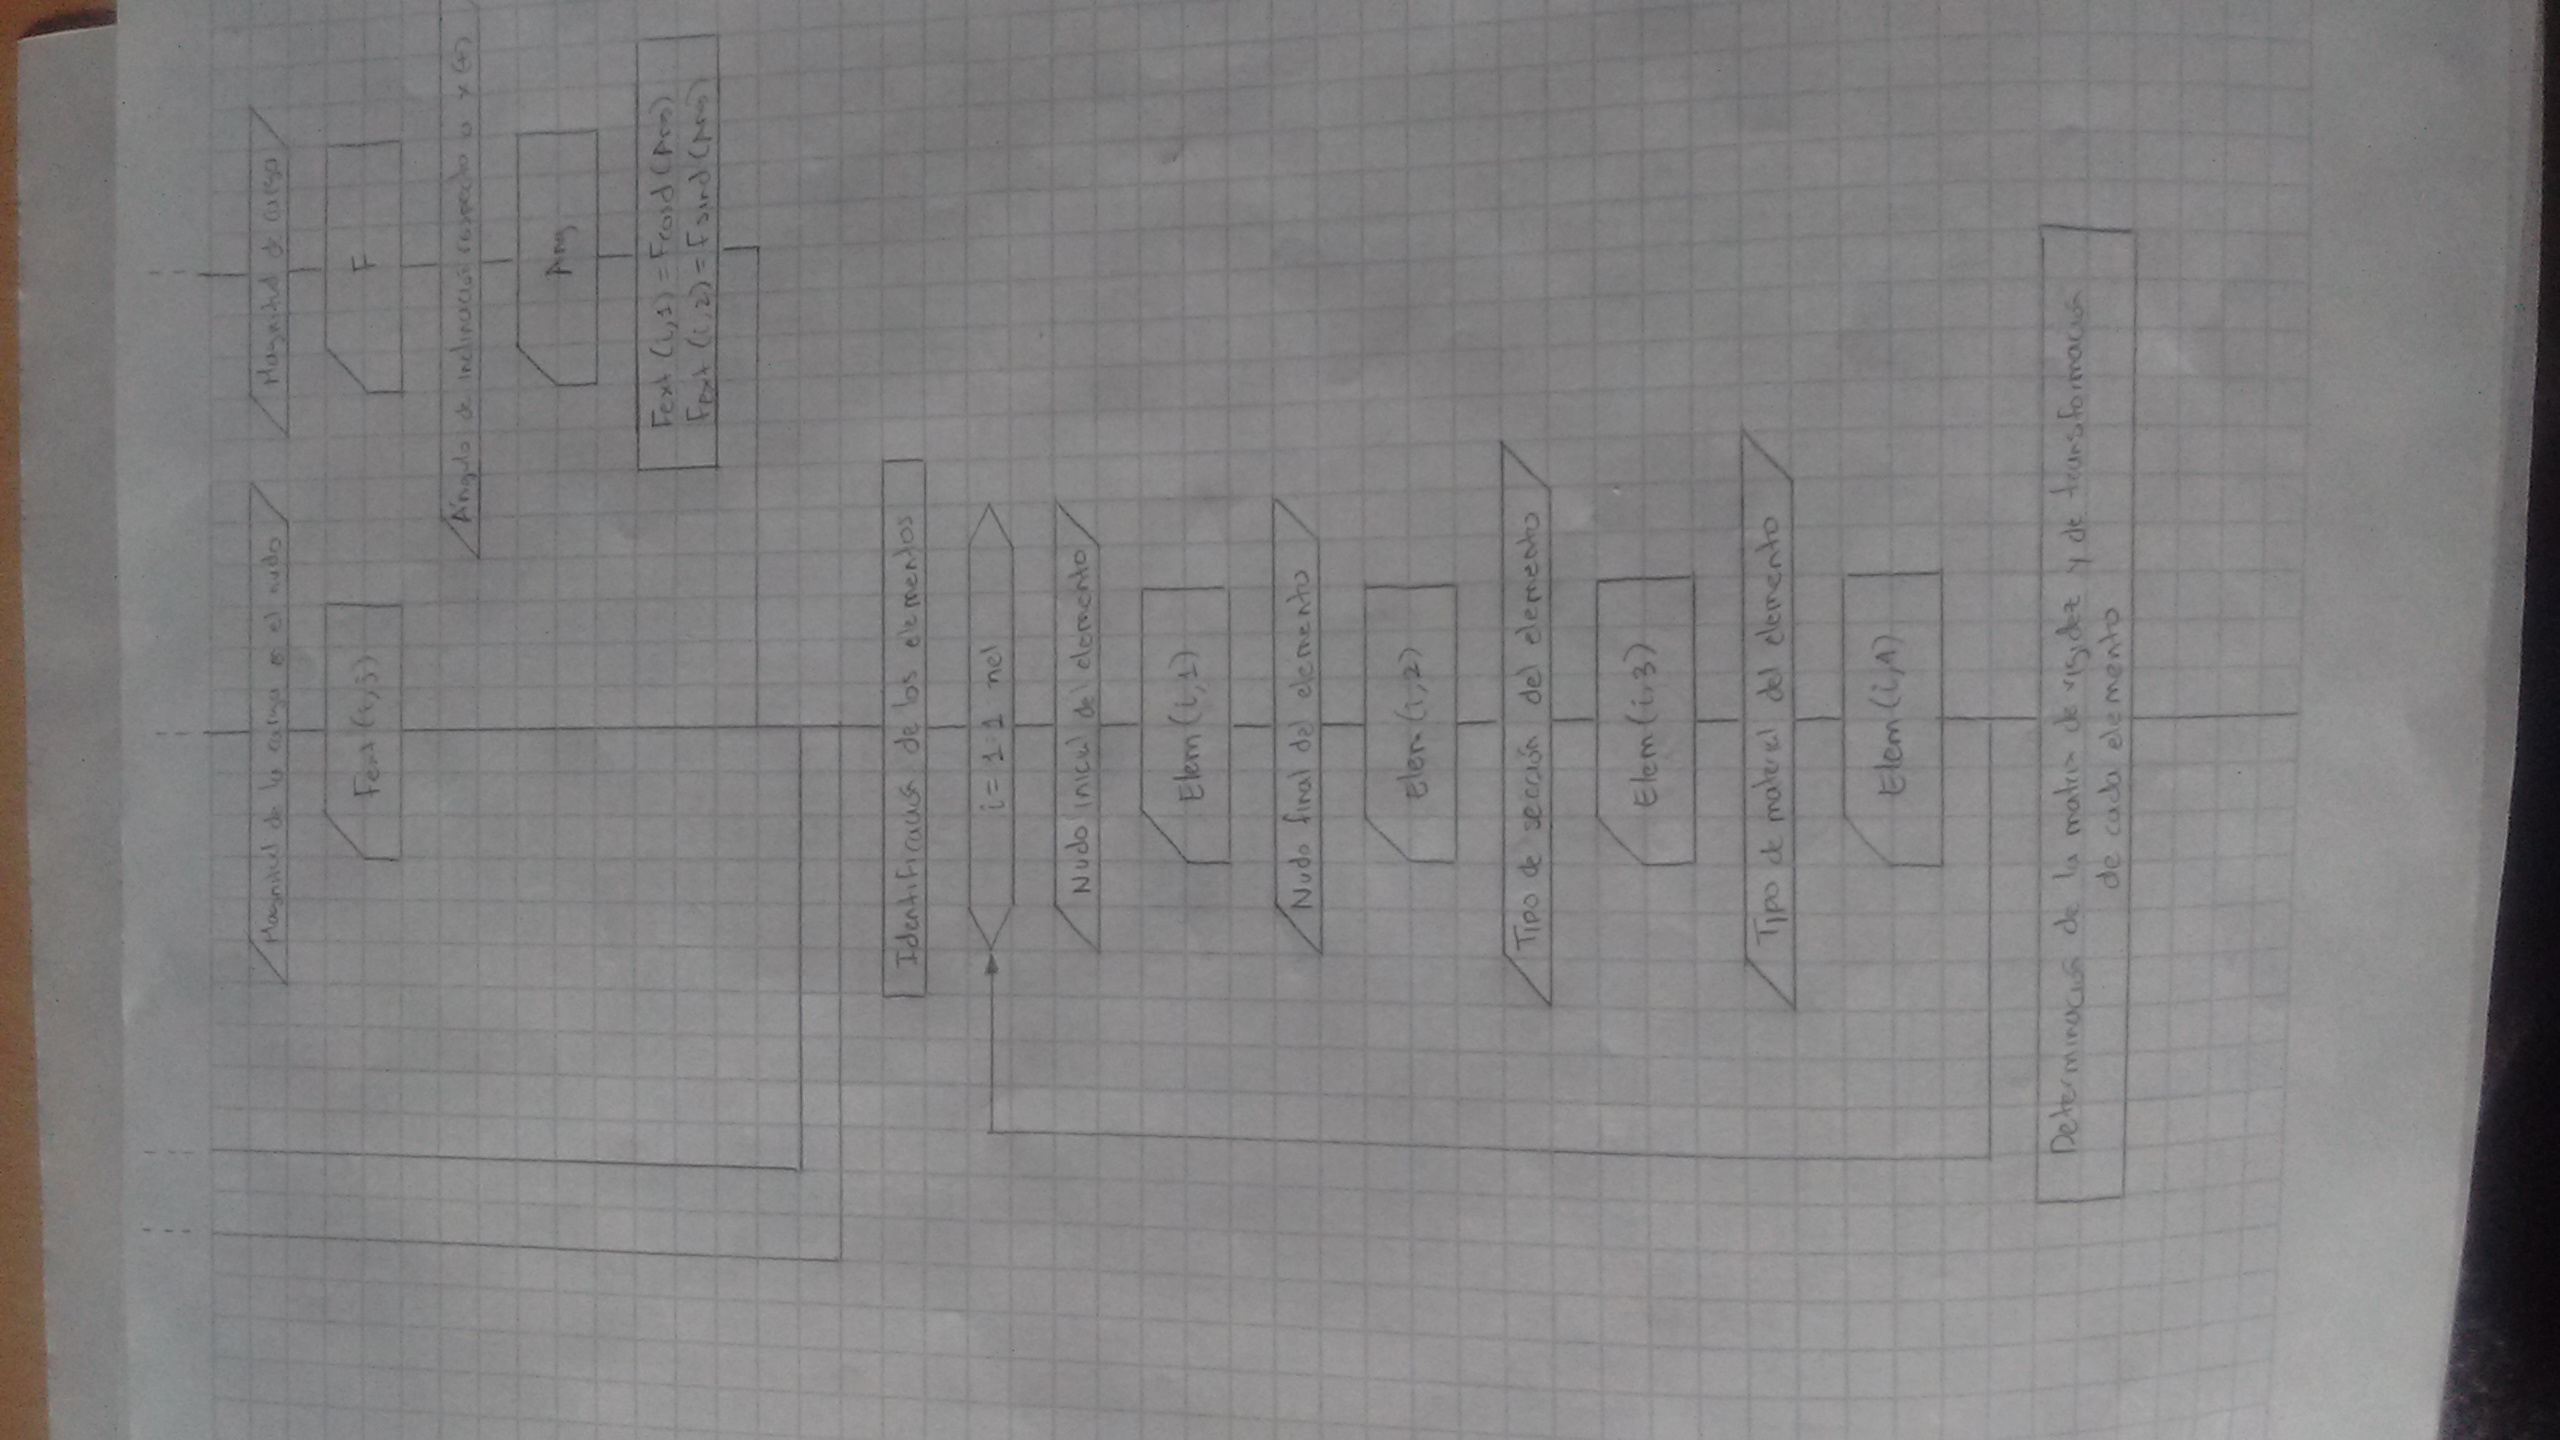 Magnitud de la carga en el nudo
Fext (i,j)
Magnitud de carga
F
Ángulo de inclinación respecto a x (+)
Ang
Fext (i,1) = Fcosd (Ang)
Fext (i,2) = Fsind (Ang)
Identificación de los elementos
i = 1:1:nel
Nudo inicial del elemento
Elem (i,1)
Nudo final del elemento
Elem (i,2)
Tipo de sección del elemento
Elem (i,3)
Tipo de material del elemento
Elem (i,4)
Determinación de la matriz de rigidez y de transformación
de cada elemento